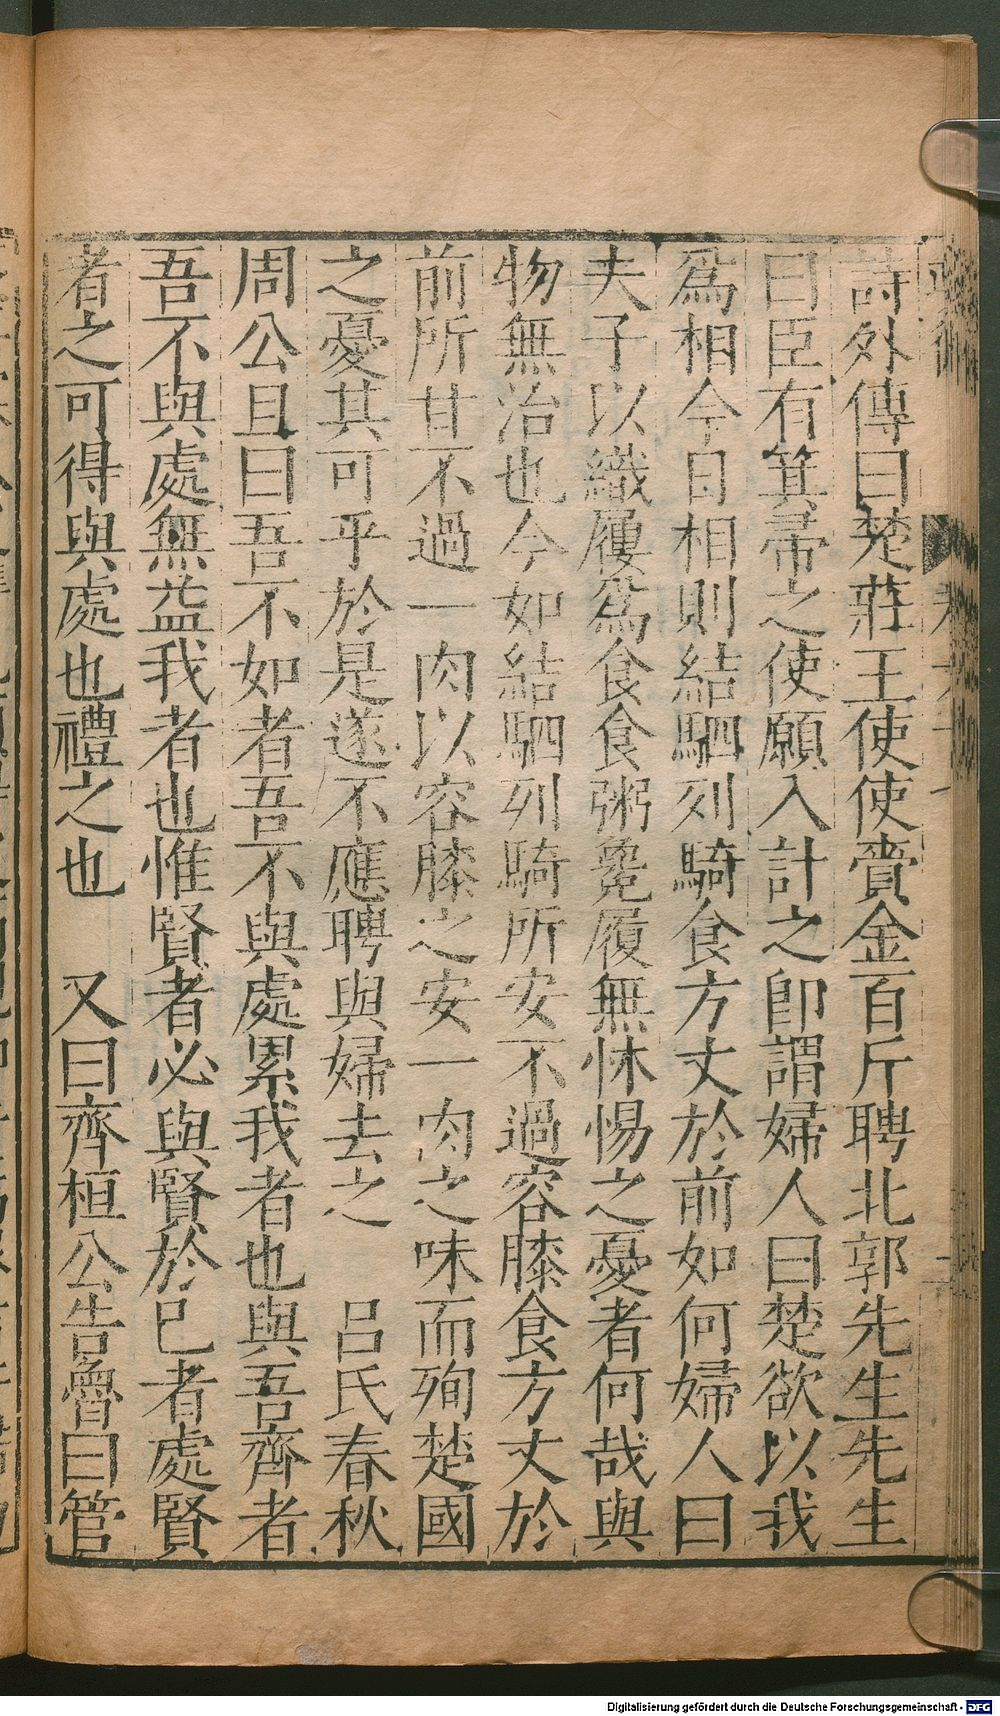 詩外傳曰楚莊王使使賫金百斤聘北郭先生先生
曰臣有箕帚之使願入計之卽謂婦人曰楚欲以我
爲相今日相則結駟列騎食方丈於前如何婦人曰
夫子以織屨爲食食粥毚履無怵惕之憂者何哉與
物無治也今如結駟列騎所安不過容膝食方丈於
前所甘不過一肉以容膝之安一肉之味而殉楚國
之憂其可乎於是遂不應聘與婦去之 呂氏春秋
周公旦曰吾不如者吾不與處累我者也與吾齊者
吾不與處無益我者也惟賢者必與賢於巳者處賢
者之可得與處也禮之也 又曰齊桓公告魯曰管
Digitalisierung gefördert durch die Deutsche Forschungsgemeinschaft - DFG